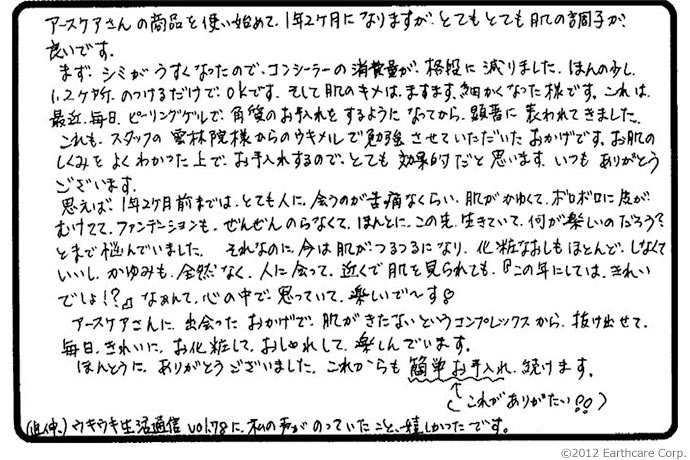 アースケアさんの商品を使い始めて、1年2ケ月になりますが、とてもとても肌の調子が、
良いです。
まず、シミがうすくなったので、コンシーラーの消費量が、格段に減りました。ほんの少し、
1、2ケ所、のつけるだけで、OKです。そして肌のキメは、ますます、細かくなった様です。これは、
最近、毎日、ピーリングゲルで、角質のお手入れをするようになってから、顕著に表われてきました。
これも、スタッフの雲林院様からのウキメルで勉強させていただいたおかげです。お肌の
しくみをよくわかった上で、お手入れするので、とても効果的だと思います。いつもありがとう
ございます。
思えば、1年2ケ月前までは、とても人に、会うのが苦痛なくらい、肌がかゆくて、ボロボロに皮が
むけてて、ファンデーションも、ぜんぜんのらなくて、ほんとに、この先、生きていて、何が楽しいのだろう?
とまで悩んでいました。それなのに、今は肌が、つるつるになり、化粧なおしもほとんど、しなくて
いいし、かゆみも、全然なく、人に会って、近くで肌を見られても、『この年にしては、きれい
でしょ!?』なぁんて、心の中で、思っていて、楽しいで〜す♪
アースケアさんに、出会ったおかげで、肌がきたないというコンプレックスから、抜け出せて、
毎日、きれいに、お化粧して、おしゃれして、楽しんでいます。
ほんとうに、ありがとうございました。これからも簡単お手入れ、続けます。
(これがありがたい!!)
ウキウキ生活通信vol.78に、私の声がのっていたこと、嬉しかったです。
©2012 Earthcare Corp.